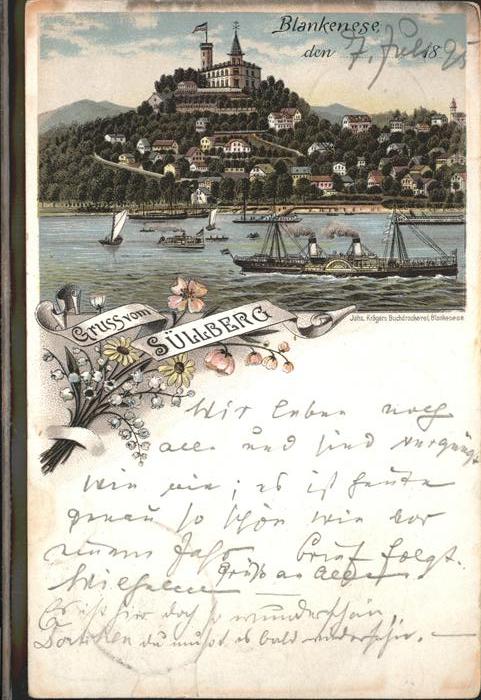 Blankenese
den 7. Juli 1895
Gruss vom
SÜLLBERG
Johs. Krögers Buchdruckerei, Blankenese
Wir leben noch
alle und sind vergnügt
wie nie; es ist heute
genau so schön wie vor
einem Jahr. Brief folgt.
Wilhelm Gruß an alle
Es ist hier doch so wunderschön,
du mußt es bald wiedersehn.